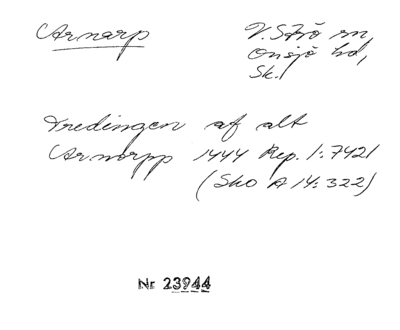 Arnarp
V. Strö sn,
Onsjö hd,
Sk.
Tredingen af alt
Arnorpp 1444 Rep. 1:7421
(Sko A 14:322)
Nr 23944